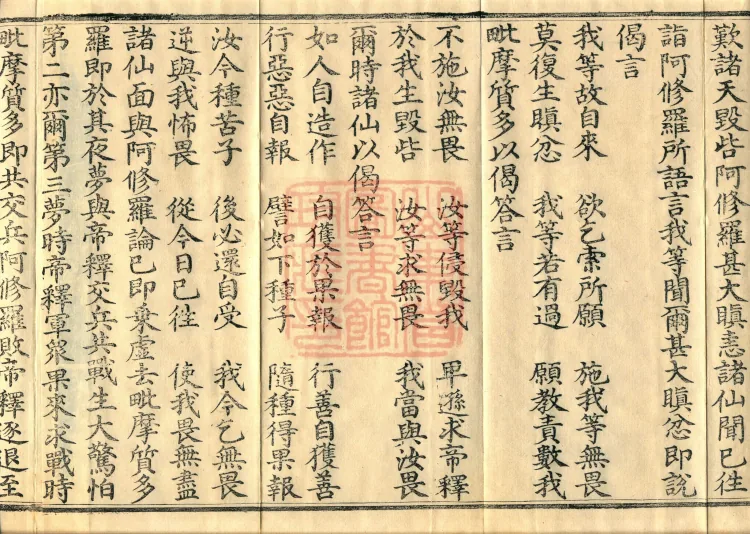 歎諸天毀呰阿修羅甚大瞋恚諸仙聞已往
詣阿修羅所語言我等聞爾甚大瞋忿即說
偈言
我等故自來　欲乞索所願　施我等無畏
莫復生瞋忿　我等若有過　願教責數我
毗摩質多以偈答言
不施汝無畏　汝等侵毀我　卑遜求帝釋
於我生毀呰　汝等求無畏　我當與汝畏
爾時諸仙以偈答言
如人自造作　自獲於果報　行善自獲善
行惡惡自報　譬如下種子　隨種得果報
汝今種苦子　後必還自受　我今乞無畏
逆與我怖畏　從今日已往　使我畏無盡
諸仙面與阿修羅論已即乘虛去毗摩質多
羅即於其夜夢與帝釋交兵共戰生大驚怕
第二亦爾第三夢時帝釋軍眾果來求戰時
毗摩質多即共交兵阿修羅敗帝釋逐退至